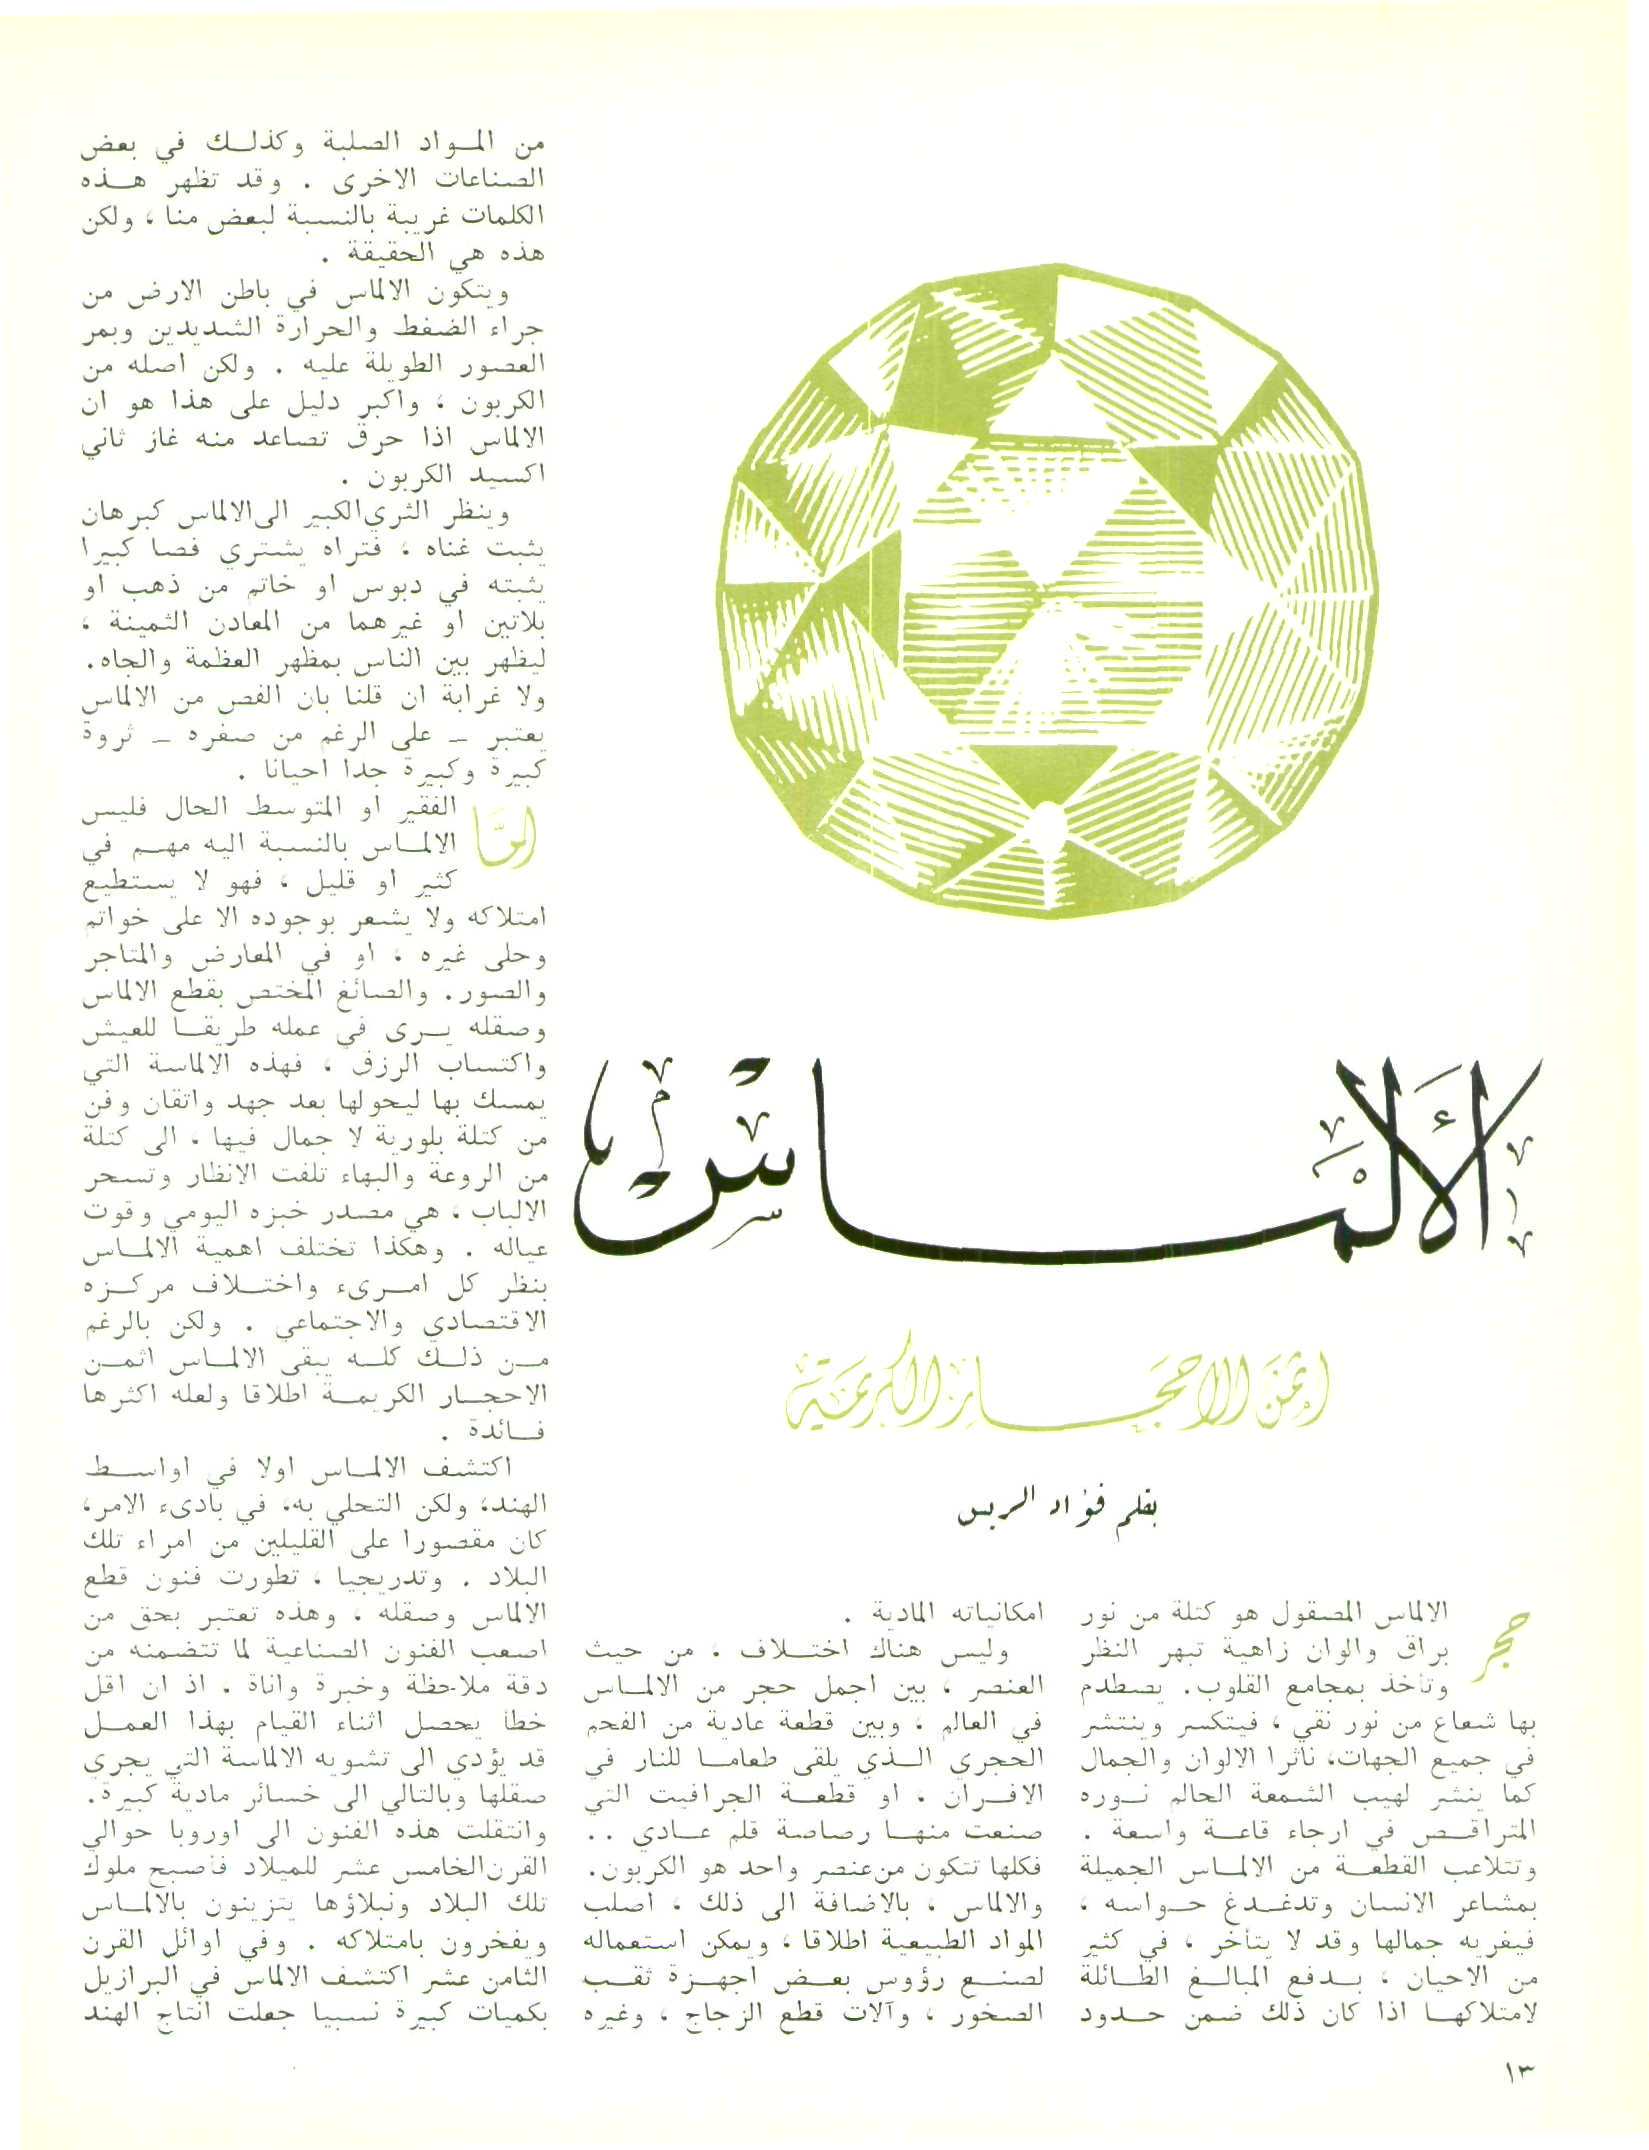 الألماس
اثمن الاحجار الكريمة
بقلم فؤاد الريس
حجر الالماس المصقول هو كتلة من نور
براق والوان زاهية تبهر النظر
وتأخذ بمجامع القلوب. يصطدم
بها شعاع من نور نقي ، فيتكسر وينتشر
في جميع الجهات، ناثرا الالوان والجمال
كما ينشر لهيب الشمعة الحالم نوره
المتراقص في ارجاء قاعة واسعة .
وتتلاعب القطعة من الالماس الجميلة
بمشاعر الانسان وتدغدغ حواسه ،
فيغريه جمالها وقد لا يتأخر ، في كثير
من الاحيان ، بدفع المبالغ الطائلة
لامتلاكها اذا كان ذلك ضمن حدود
امكانياته المادية .
وليس هناك اختلاف ، من حيث
العنصر ، بين اجمل حجر من الالماس
في العالم ، وبين قطعة عادية من الفحم
الحجري الذي يلقى طعاما للنار في
الافران ، او قطعة الجرافيت التي
صنعت منها رصاصة قلم عادي ..
فكلها تتكون من عنصر واحد هو الكربون.
والالماس ، بالاضافة الى ذلك ، اصلب
المواد الطبيعية اطلاقا ، ويمكن استعماله
لصنع رؤوس بعض اجهزة ثقب
الصخور ، وآلات قطع الزجاج ، وغيره
من المواد الصلبة وكذلك في بعض
الصناعات الاخرى . وقد تظهر هذه
الكلمات غريبة بالنسبة لبعض منا ، ولكن
هذه هي الحقيقة .
ويتكون الالماس في باطن الارض من
جراء الضغط والحرارة الشديدين وبمر
العصور الطويلة عليه . ولكن اصله من
الكربون ، واكبر دليل على هذا هو ان
الالماس اذا حرق تصاعد منه غاز ثاني
اكسيد الكربون .
وينظر الثري الكبير الى الالماس كبرهان
يثبت غناه ، فتراه يشتري فصا كبيرا
يثبته في دبوس او خاتم من ذهب او
بلاتين او غيرهما من المعادن الثمينة ،
ليظهر بين الناس بمظهر العظمة والجاه.
ولا غرابة ان قلنا بان الفص من الالماس
يعتبر – على الرغم من صغره – ثروة
كبيرة وكبيرة جدا احيانا .
امّا الفقير او المتوسط الحال فليس
الالماس بالنسبة اليه مهم في
كثير او قليل ، فهو لا يستطيع
امتلاكه ولا يشعر بوجوده الا على خواتم
وحلى غيره ، او في المعارض والمتاجر
والصور. والصائغ المختص بقطع الالماس
وصقله يرى في عمله طريقا للعيش
واكتساب الرزق ، فهذه الالماسة التي
يمسك بها ليحولها بعد جهد واتقان وفن
من كتلة بلورية لا جمال فيها ، الى كتلة
من الروعة والبهاء تلفت الانظار وتسحر
الالباب ، هي مصدر خبزه اليومي وقوت
عياله . وهكذا تختلف اهمية الالماس
بنظر كل امرىء واختلاف مركزه
الاقتصادي والاجتماعي . ولكن بالرغم
من ذلك كله يبقى الالماس اثمن
الاحجار الكريمة اطلاقا ولعله اكثرها
فائدة .
اكتشف الالماس اولا في اواسط
الهند، ولكن التحلي به، في بادىء الامر،
كان مقصورا على القليلين من امراء تلك
البلاد . وتدريجيا ، تطورت فنون قطع
الالماس وصقله ، وهذه تعتبر بحق من
اصعب الفنون الصناعية لما تتضمنه من
دقة ملاحظة وخبرة واناة . اذ ان اقل
خطأ يحصل اثناء القيام بهذا العمل
قد يؤدي الى تشويه الالماسة التي يجري
صقلها وبالتالي الى خسائر مادية كبيرة.
وانتقلت هذه الفنون الى اوروبا حوالي
القرن الخامس عشر للميلاد فأصبح ملوك
تلك البلاد ونبلاؤها يتزينون بالالماس
ويفخرون بامتلاكه . وفي اوائل القرن
الثامن عشر اكتشف الالماس في البرازيل
بكميات كبيرة نسبيا جعلت انتاج الهند
١٣